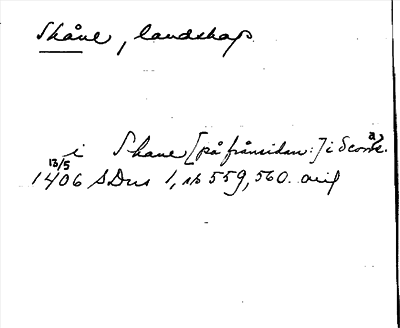 Skåne, landskap
i Skane [på frånsidan:] i Scone.
13/5
1406 SDns 1, sb 559, 560. orig